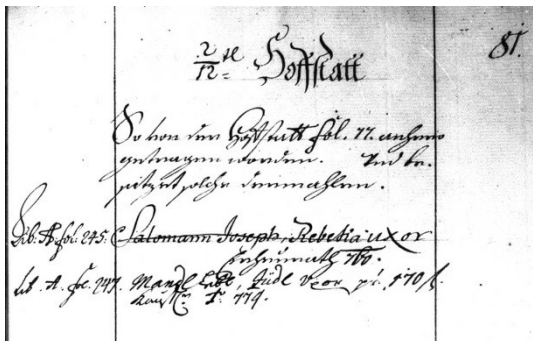 81.
2/12 tl Hoffstatt
So von der Hoffstatt fol. 77. anhero
getragen worden. Und be-
sitzet solche dermahlen.
Lib. A fol. 245. Salomann Joseph, Rebekia uxor
760.
Lib. A. fol. 247. Mandl Jüdl uxor, pr. 170 f.
779.